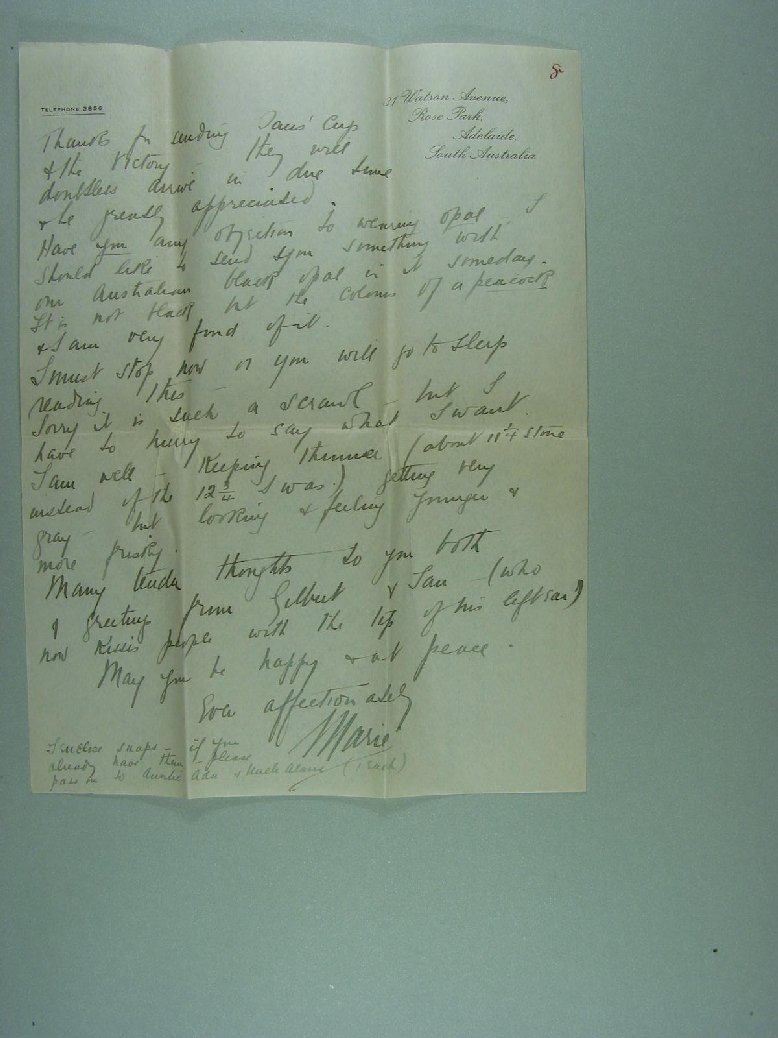 8
TELEPHONE 3856
21 Watson Avenue,
Rose Park,
Adelaide,
South Australia.
Thanks for sending Ians' Cup
& the Victory – They will
doubtless arrive in due time
& be greatly appreciated.
Have you any objection to wearing opal – I
should like to send you something with
our Australian black opal in it someday.
It is not black but the colours of a peacock
& I am very fond of it.
I must stop now or you will go to sleep
reading this –
Sorry it is such a scrawl – but I
have to hurry to say what I want.
I am well – Keeping thinner (about 11 1/4 stone
instead of the 12 3/4 I was.) getting very
gray – but looking & feeling younger &
more frisky.
Many tender thoughts to you both
& greetings from Gilbert & Ian (who
now kisses people with the tip of his left ear)
May you be happy & at peace.
Ever affectionately
Marie
I enclose snaps – if you
already have them – please
pass on to Auntie Ada & Uncle (1 each)